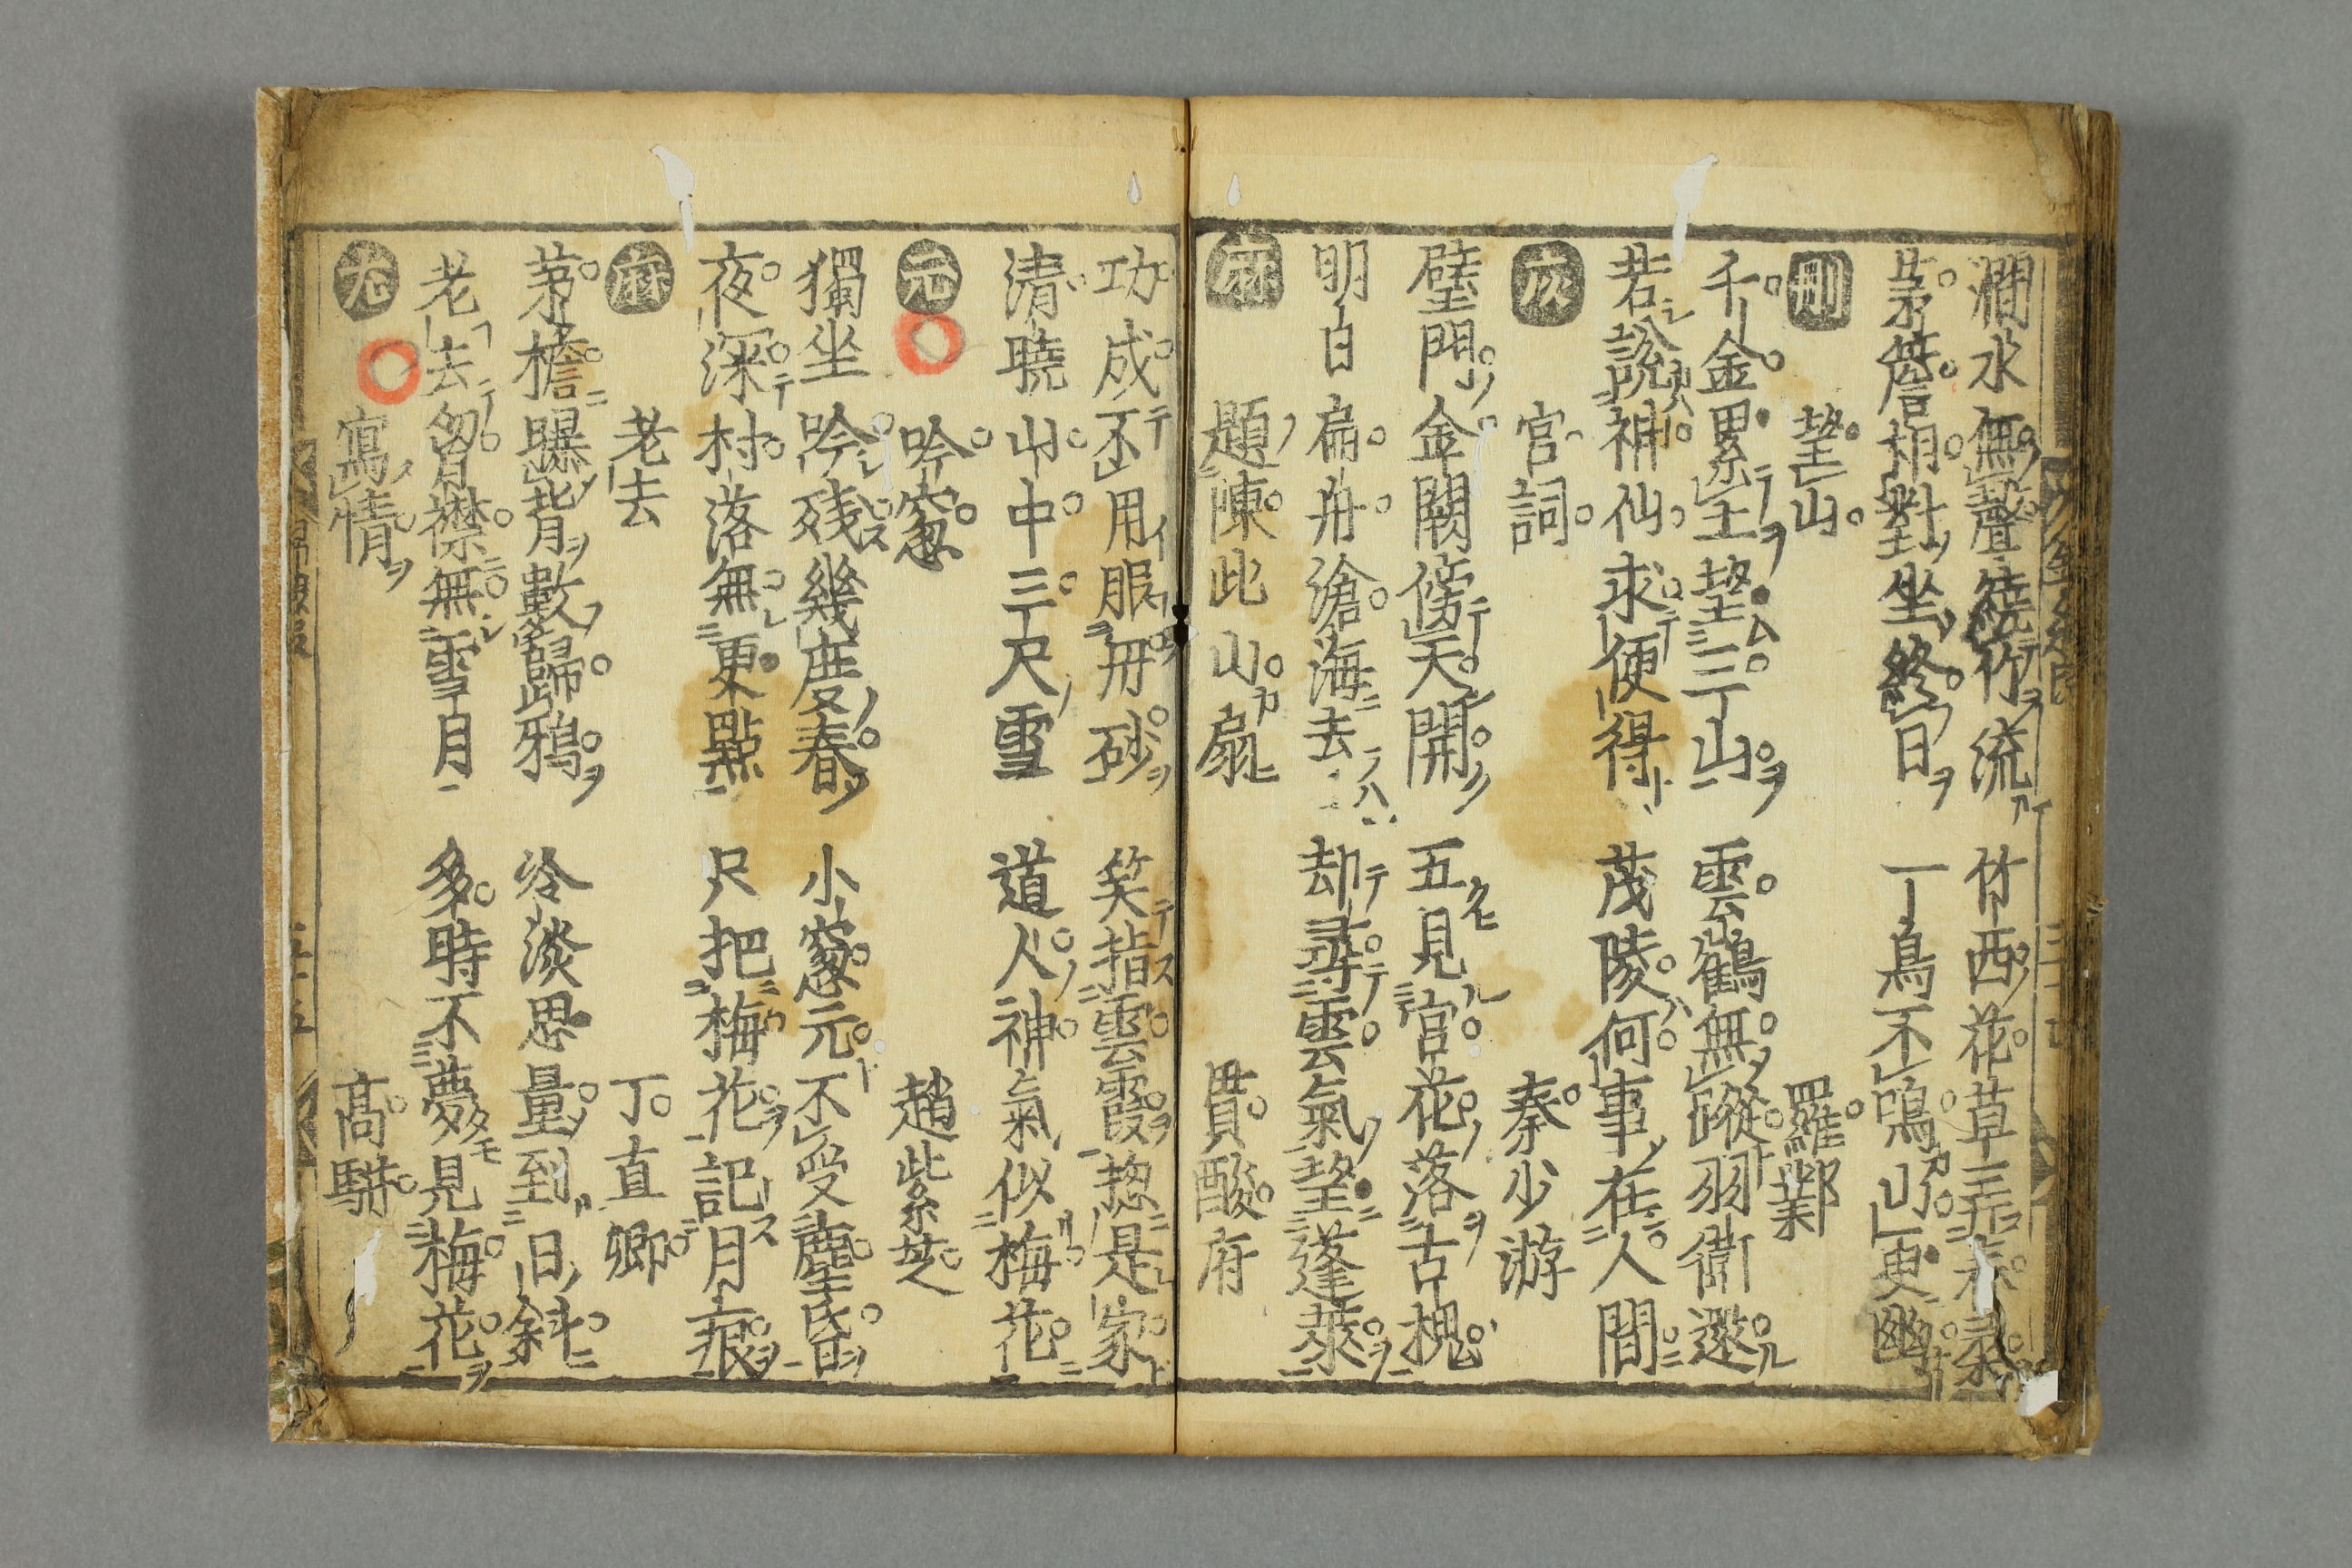 澗水無聲繞竹流 竹西花草弄春柔
茅簷相對坐終日 一鳥不鳴山更幽
望山 羅鄴
千金累土望三山 雲鶴無蹤羽衛還
若說神仙求便得 茂陵何事在人間
宮詞 秦少游
璧門金闕倚天開 五見宮花落古槐
明白扁舟滄海去 却尋雲氣望蓬萊
題陳此山扇 貫酸府
功成不用服丹砂 笑指雲霞揔是家
清曉山中三尺雪 道人神氣似梅花
元 吟窓 趙紫芝
獨坐吟殘幾度春 小窓元不受塵昏
夜深村落無更點 只把梅花記月痕
麻 老去 丁直卿
茅檐曝背數歸鴉 冷淡思量到日斜
老去胷襟無雪月 多時不夢見梅花
寫情 高駢